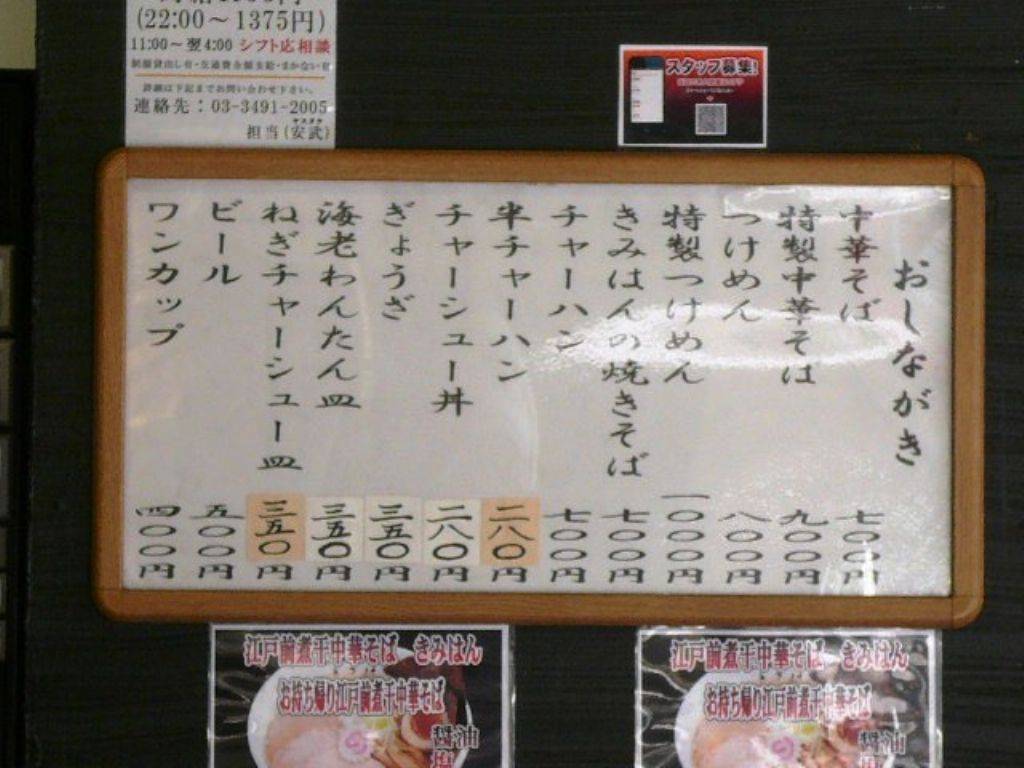 (22:00～1375円)
11:00～翌4:00 シフト応相談
制服貸出し有・交通費全額支給・まかない有
詳細は下記までお問い合わせ下さい。
連絡先：03-3491-2005
ヤスタケ
担当(安武)
スタッフ募集!
おしながき
中華そば 七〇〇円
特製中華そば 九〇〇円
つけめん 八〇〇円
特製つけめん 一〇〇〇円
きみはんの焼きそば 七〇〇円
チャーハン 七〇〇円
半チャーハン 二八〇円
チャーシュー丼 二八〇円
ぎょうざ 三五〇円
海老わんたん皿 三五〇円
ねぎチャーシュー皿 三五〇円
ビール 五〇〇円
ワンカップ 四〇〇円
江戸前煮干中華そば きみはん
お持ち帰り江戸前煮干中華そば
醤油
塩
江戸前煮干中華そば きみはん
お持ち帰り江戸前煮干中華そば
醤油
塩